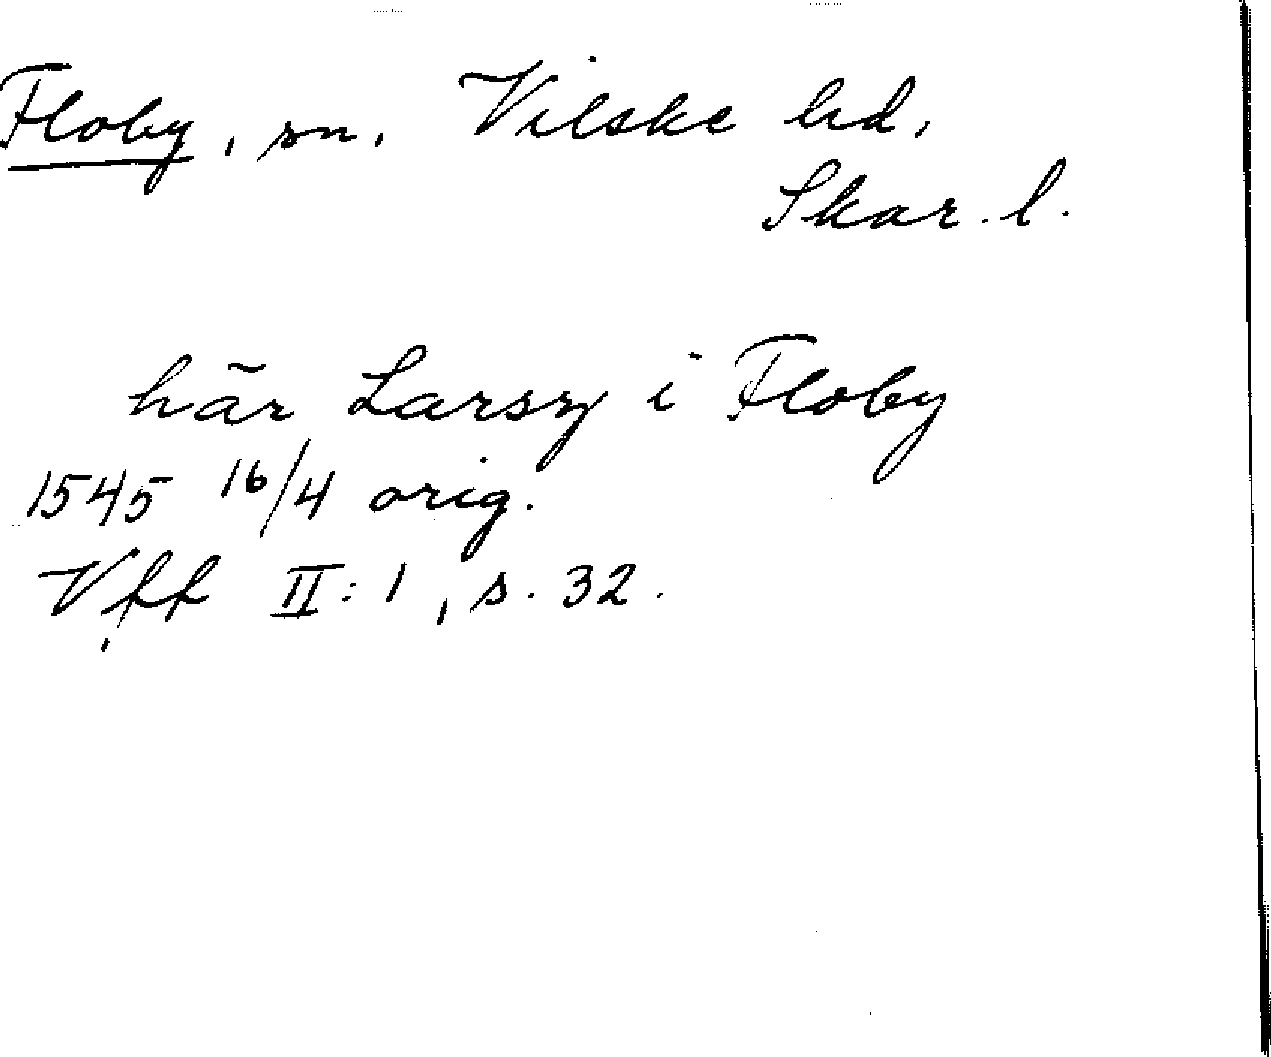 Floby, sn. Vilske hd,
Skar. l.
här Larsz i Floby
1545 16/4 orig.
Vff II:1, s. 32.